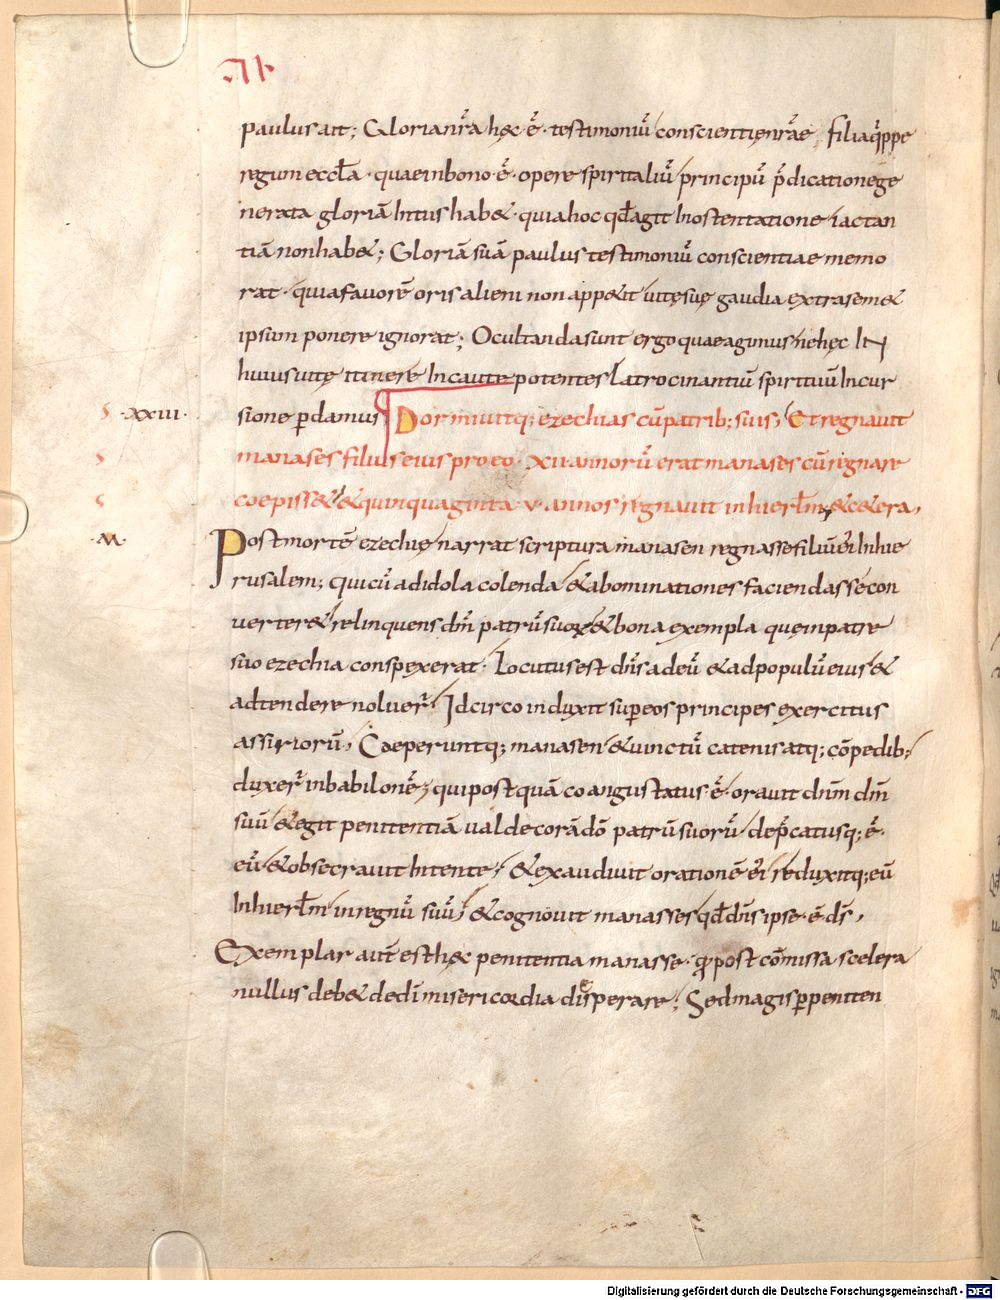 paulus ait; Gloria nr̄a hęc ē · testimoniū conscientię nr̄ae filia q̄ppe
regum eccl̄a · quae in bono ē · opere spiritaliū principū p̄dicatione ge
nerata gloriā Intus hab& · quia hoc qd̄ agit In ostentatione iactan
tiā non hab&; Gloriā suā paulus testimoniū conscientiae memo
rat · quia favorē oris alieni non app&it vitę suę gaudia extra sem&
ipsum ponere ignorat; Ocultanda sunt ergo quae agimus ne hęc IN
huius vitę itinere Incaute potentes Latrocinantiū spirituū Incur
S · XXIII · sione p̱damus Dormivitq; ezechias cū patrib; suis, Et regnavit
S manases filius eius pro eo · XII annorū erat manases cū regnare
S coepiss& & quinquaginta · V · annos regnavit in hierl̄m, & c&era,
· M · Post mortē ezechię narrat scriptura manasen regnasse filiū ei In hie
rusalem; qui cū ad idola colenda & abominationes faciendas se con
verter& relinquens dm̄ patrū suorum & bona exempla quę in patre
suo ezechia conspexerat · Locutus est dn̄s ad eū & ad populū eius &
adtendere noluer̄, Idcirco induxit sup̱ eos principes exercitus
assiriorū, Coeperuntq; manasen & vinctū catenis atq; cōpedib;
duxer̄ in babilonē, qui postquā coangustatus ē · oravit dnm̄ dm̄
suū & egit penitentiā valde corā dō patrū suorū dep̄catusq; ē ·
eū & obsecravit Intente, & exaudivit orationē ei reduxitq; eū
In hierl̄m in regnū suū, & cognovit manasses qd̄ dn̄s ipse · ē d̄s,
Exemplar aut̄ est hęc penitentia manasse · q̱ post cōmissa scelera
nullus deb& de dī misericordia disperare, Sed magis p̱ peniten
Digitalisierung gefördert durch die Deutsche Forschungsgemeinschaft - DFG